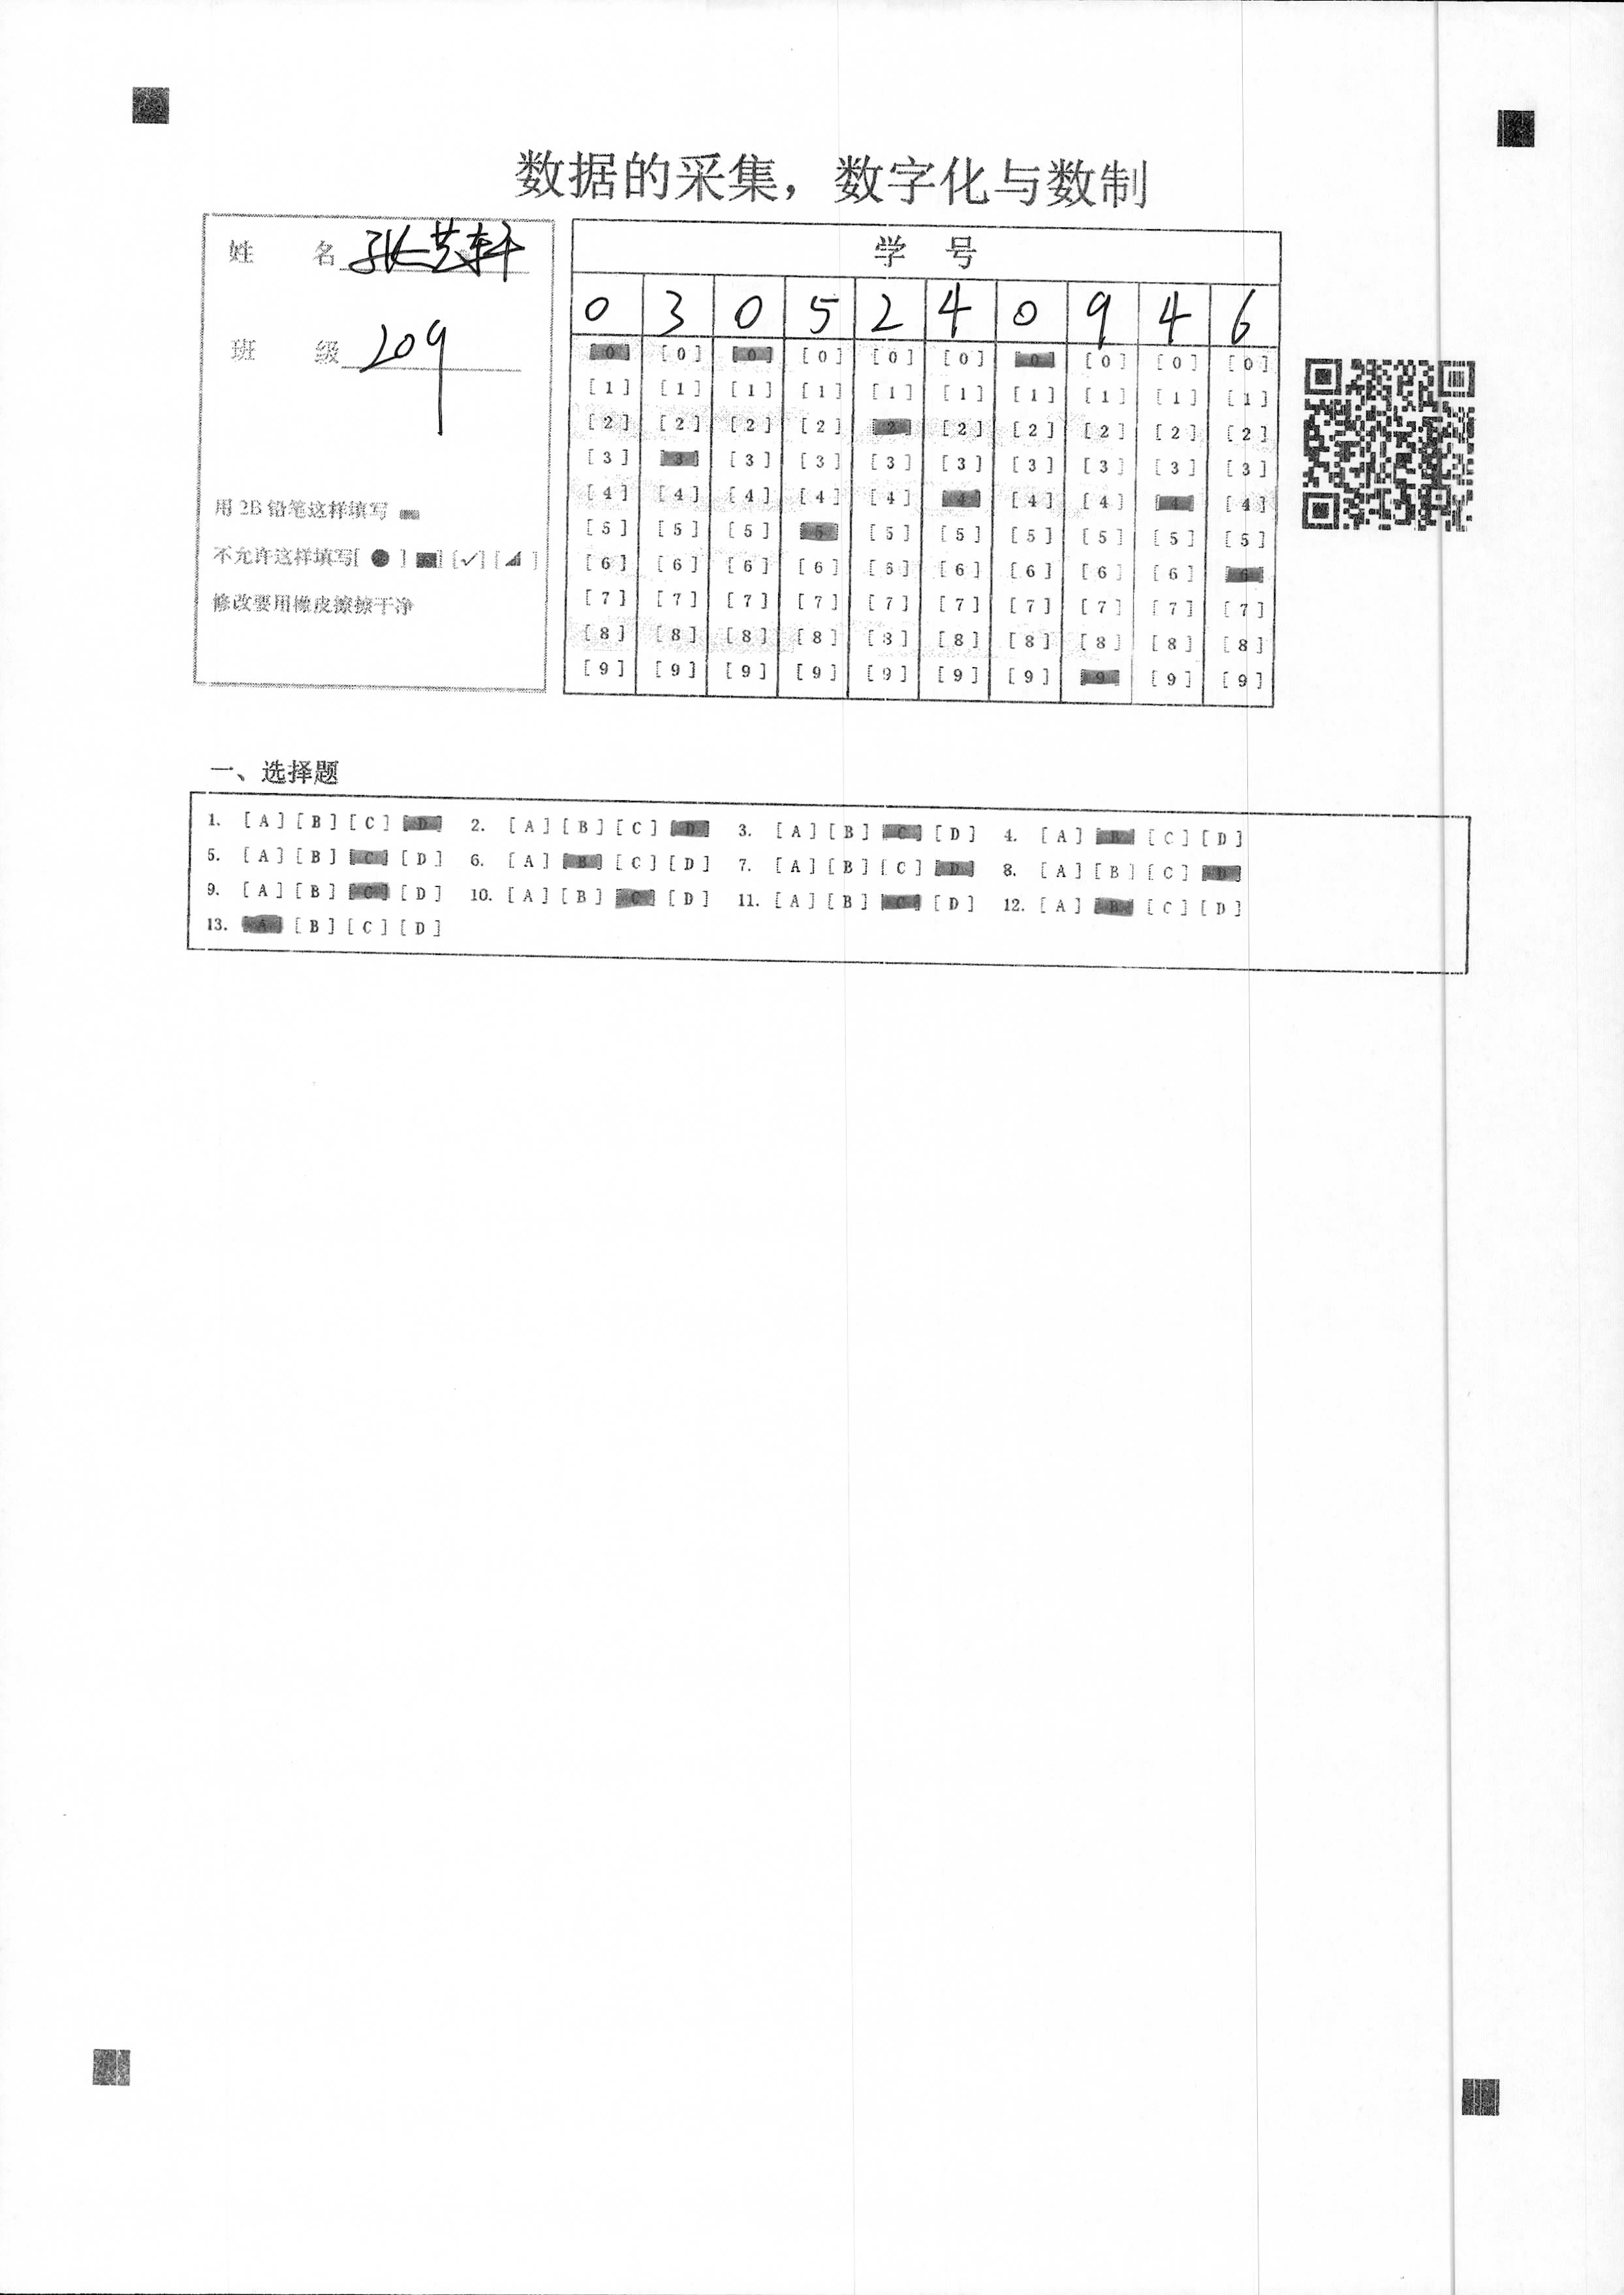 数据的采集，数字化与数制
姓 名 张艺轩
班 级 209
用 2B 铅笔这样填写
不允许这样填写[ ● ] [■] [✓] [◢]
修改要用橡皮擦擦干净
学 号
0 3 0 5 2 4 0 9 4 6
[0] [0] [0] [0] [0] [0] [0] [0] [0] [0]
[1] [1] [1] [1] [1] [1] [1] [1] [1] [1]
[2] [2] [2] [2] [2] [2] [2] [2] [2] [2]
[3] [3] [3] [3] [3] [3] [3] [3] [3] [3]
[4] [4] [4] [4] [4] [4] [4] [4] [4] [4]
[5] [5] [5] [5] [5] [5] [5] [5] [5] [5]
[6] [6] [6] [6] [6] [6] [6] [6] [6] [6]
[7] [7] [7] [7] [7] [7] [7] [7] [7] [7]
[8] [8] [8] [8] [8] [8] [8] [8] [8] [8]
[9] [9] [9] [9] [9] [9] [9] [9] [9] [9]
一、选择题
1. [A] [B] [C] [D] 2. [A] [B] [C] [D] 3. [A] [B] [C] [D] 4. [A] [B] [C] [D]
5. [A] [B] [C] [D] 6. [A] [B] [C] [D] 7. [A] [B] [C] [D] 8. [A] [B] [C] [D]
9. [A] [B] [C] [D] 10. [A] [B] [C] [D] 11. [A] [B] [C] [D] 12. [A] [B] [C] [D]
13. [A] [B] [C] [D]